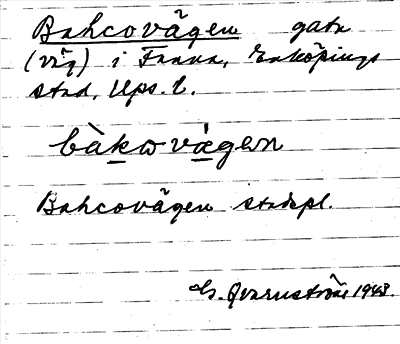 Bahcovägen gata
(väg) i Fanna, Enköpings
stad, Ups. l.
bàkovä́gen
Bahcovägen stadspl.
G. Qvarnström 1943.